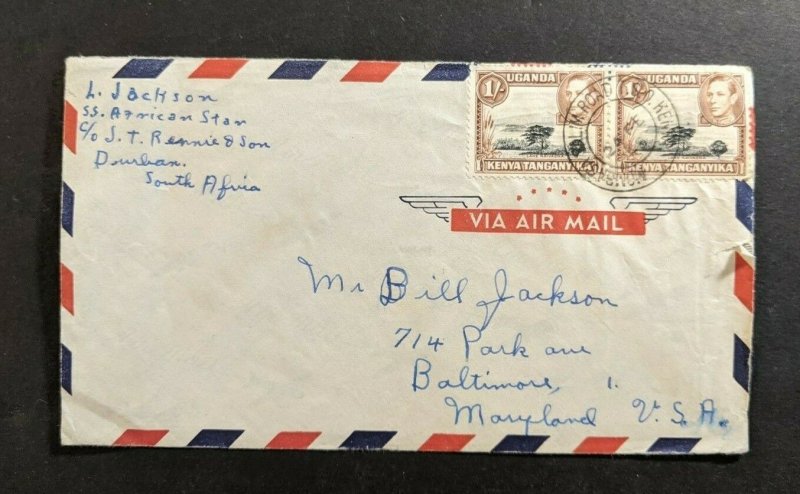 L. Jackson
SS. African Star
c/o J. T. Rennie & Son
Durban.
South Afria
UGANDA
1/-
KENYA TANGANYIKA
UGANDA
1/-
KENYA TANGANYIKA
VIA AIR MAIL
Mr Bill Jackson
714 Park ave
Baltimore, 1.
Maryland U.S.A.